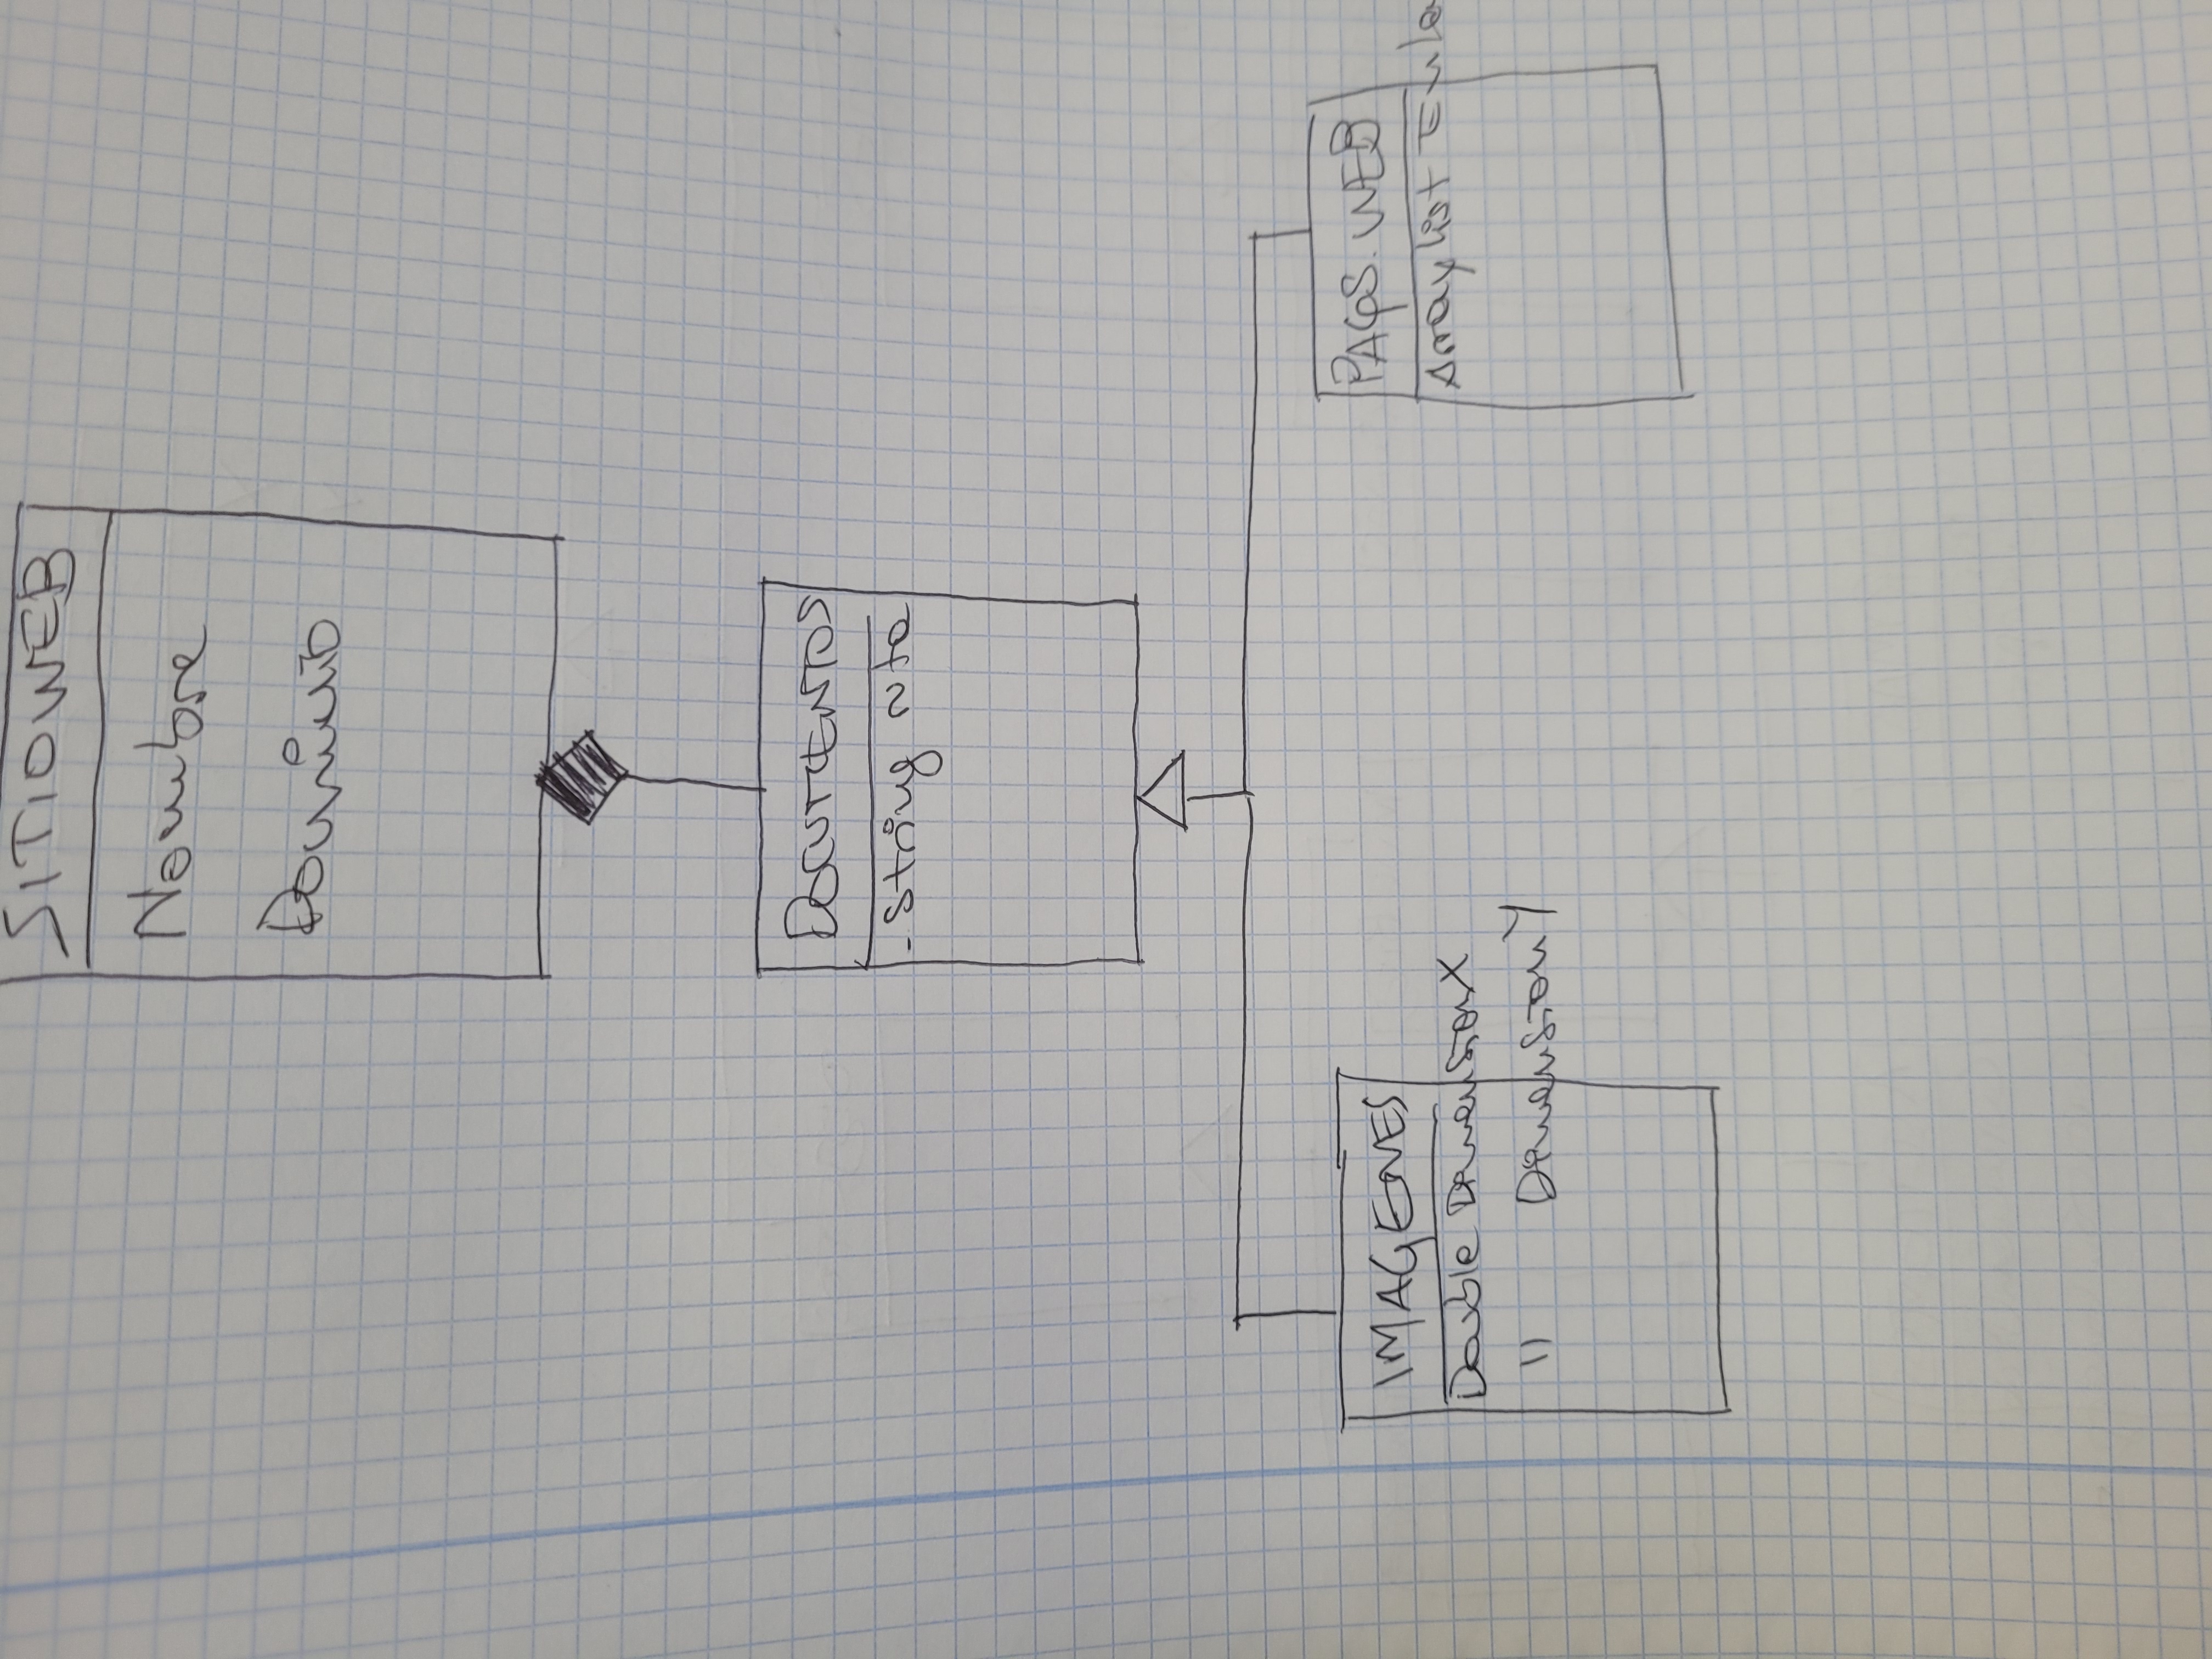 SITIOWEB
Nombre
Dominio
DOCUMENTOS
- String ruta
IMAGENES
Double DimensionX
" DimensionY
PAGS. WEB
ArrayList Enla